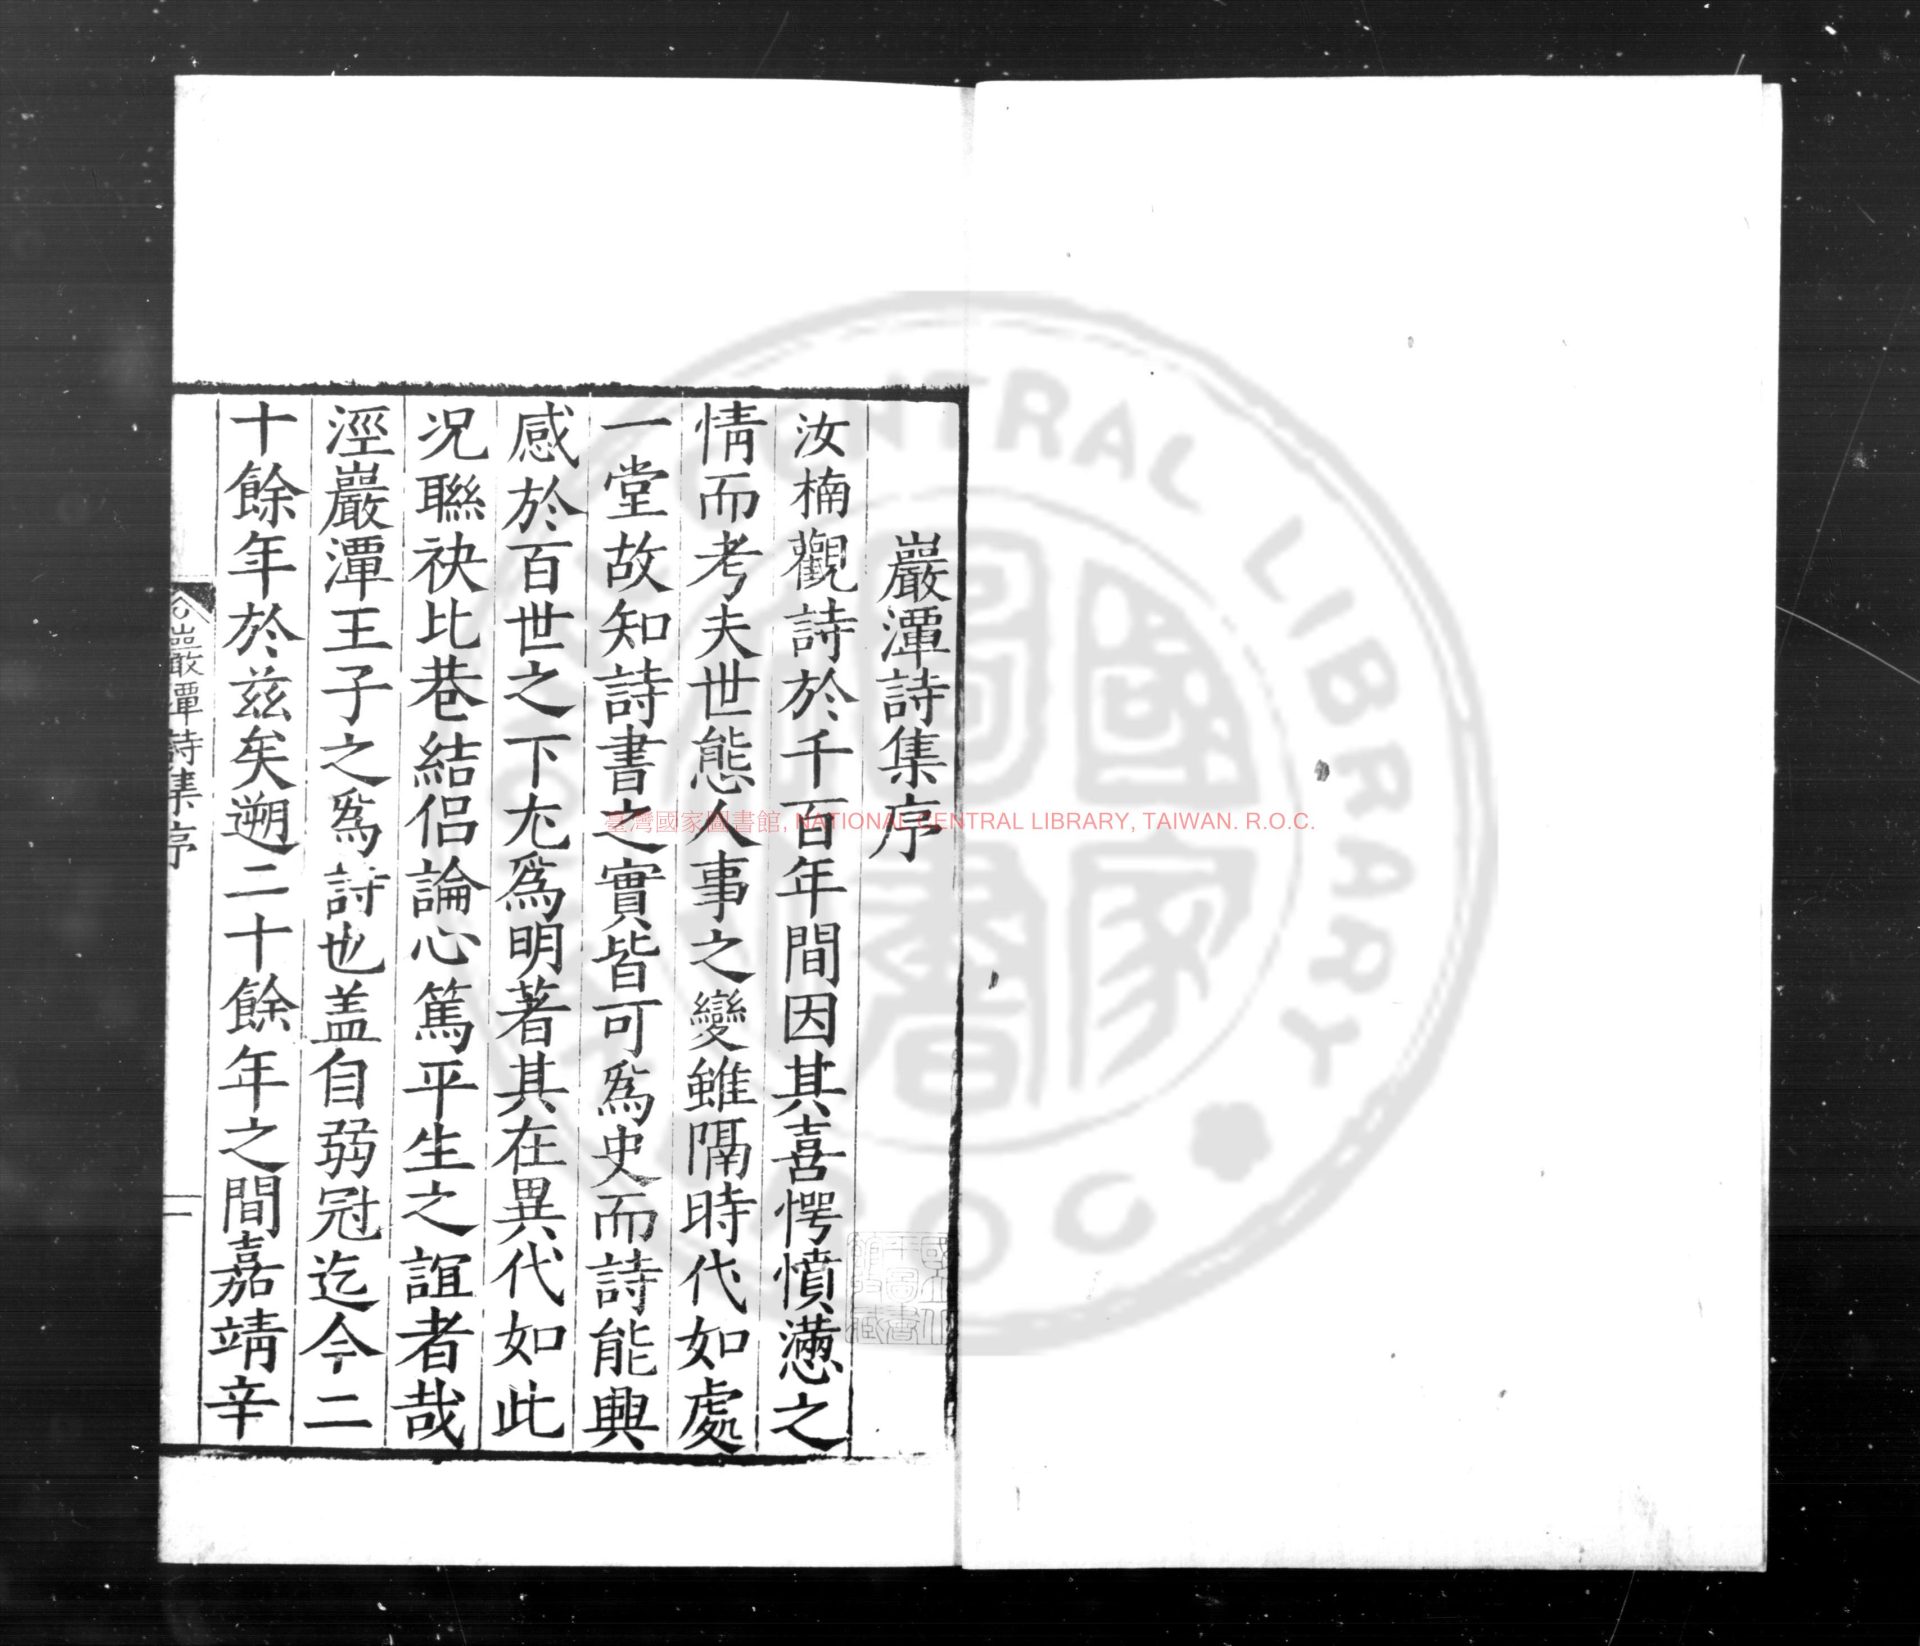 巖潭詩集序
汝楠觀詩於千百年間因其喜愕憤懣之
情而考夫世態人事之變雖隔時代如處
一堂故知詩書之實皆可爲史而詩能興
感於百世之下尤爲明著其在異代如此
况聯袂比巷結侣論心篤平生之誼者哉
涇巖潭王子之爲詩也盖自弱冠迄今二
十餘年於兹矣遡二十餘年之間嘉靖辛
巖潭詩集序
一
臺灣國家圖書館, NATIONAL CENTRAL LIBRARY, TAIWAN. R.O.C.
NATIONAL CENTRAL LIBRARY R.O.C.
國家圖書